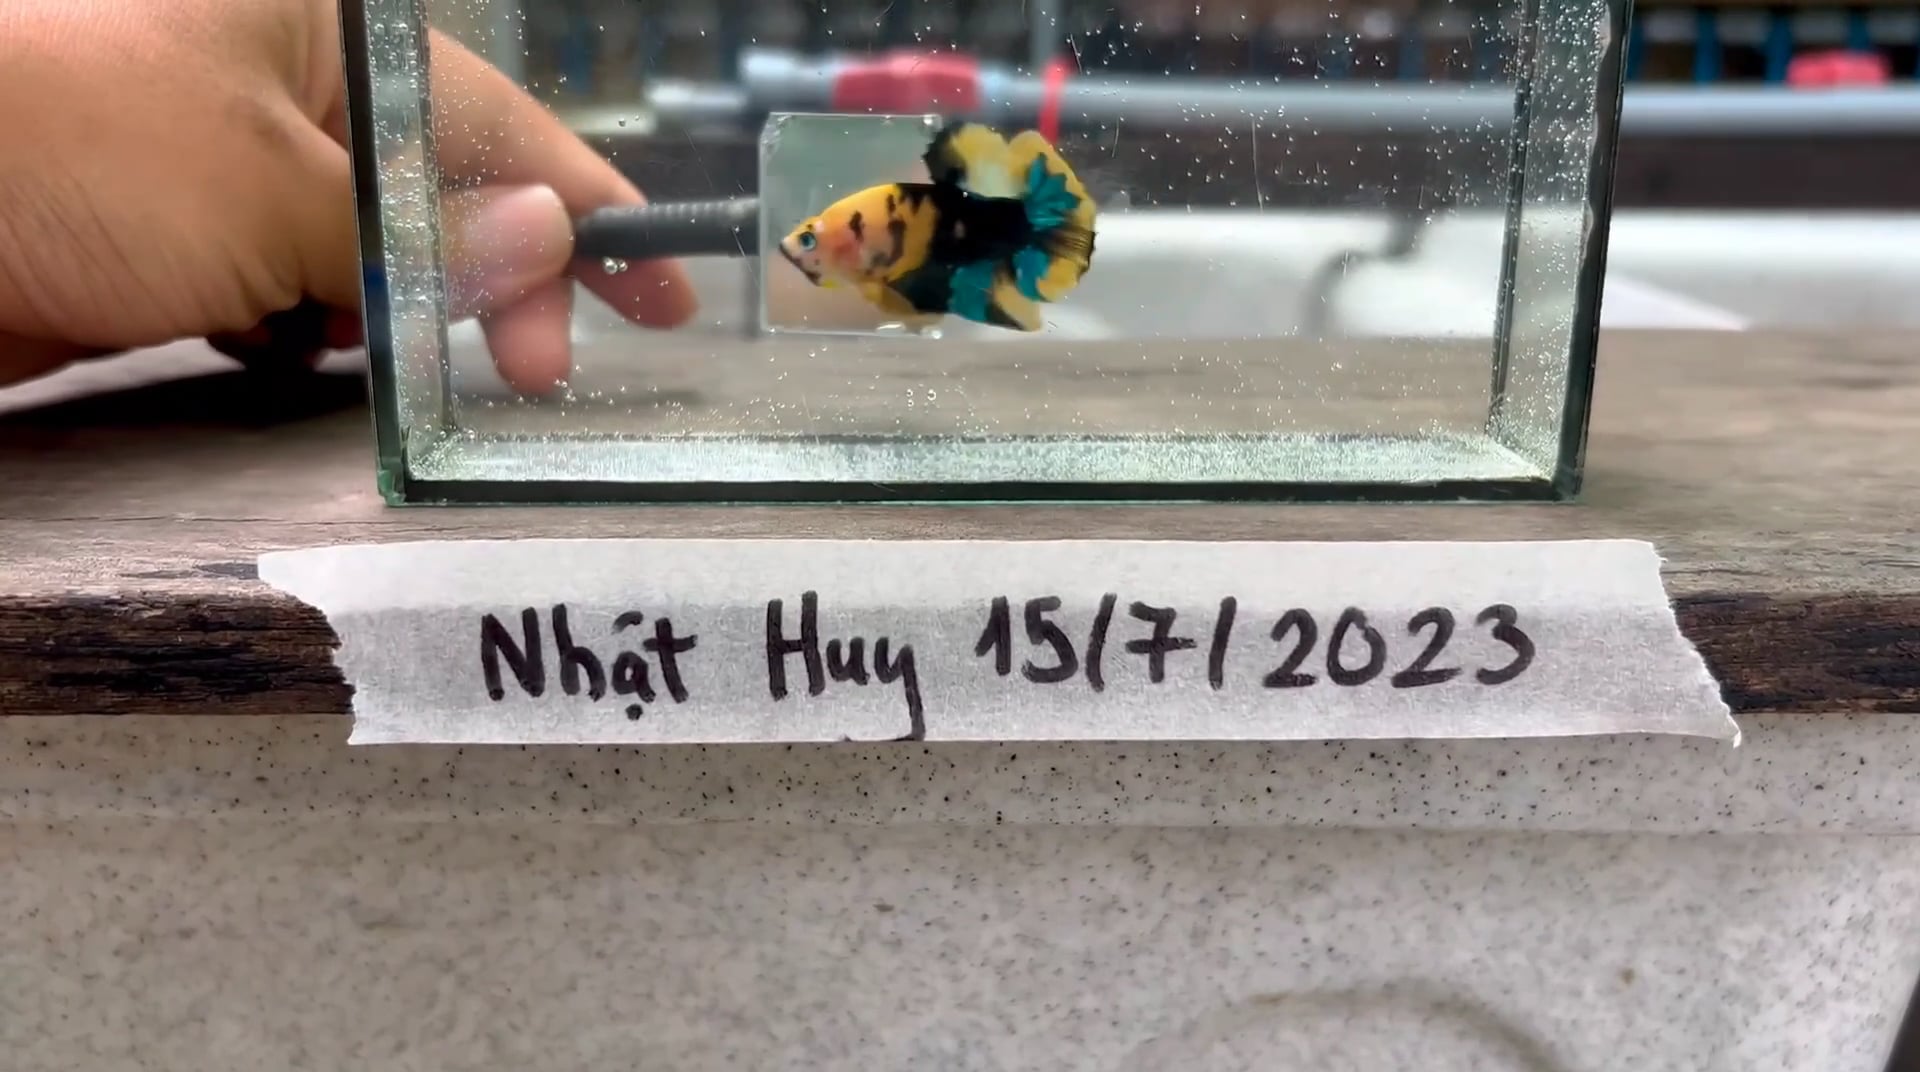 Nhật Huy 15/7/2023